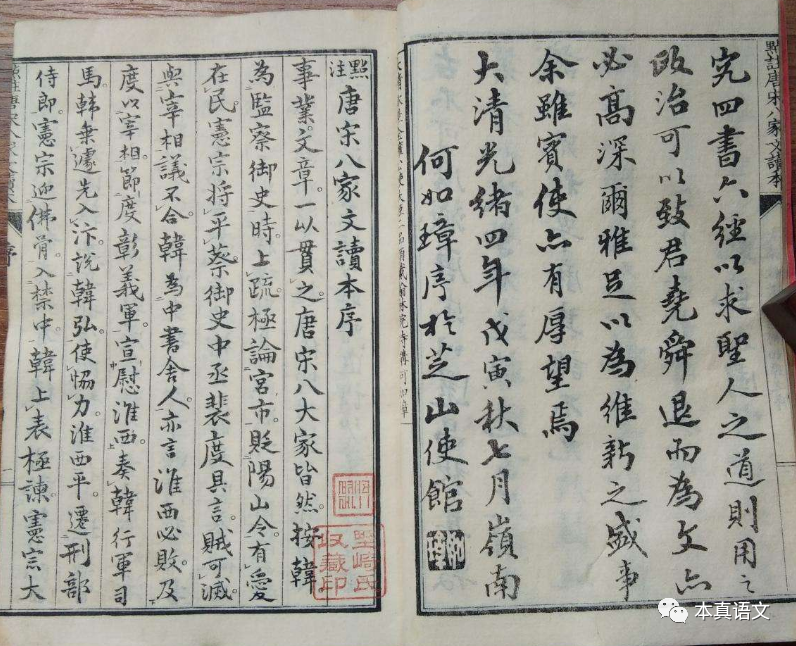 點註唐宋八家文讀本
究四書六經以求聖人之道則用之
政治可以致君堯舜退而為文亦
必高深爾雅足以為維新之盛事
余雖賓使亦有厚望焉
大清光緒四年戊寅秋七月嶺南
何如璋序於芝山使館
點註唐宋八家文讀本序
事業文章。一以貫之。唐宋八大家皆然。按韓
為監察御史時。上疏極論宮市。貶陽山令。有愛
在民。憲宗將平蔡。御史中丞裴度具言賊可滅。
與宰相議不合。韓為中書舍人。亦言淮西必敗。及
度以宰相節度彰義軍。宣慰淮西。奏韓行軍司
馬。韓乘遽先入汴。說韓弘使協力。淮西平。遷刑部
侍郎。憲宗迎佛骨入禁中。韓上表極諫。憲宗大
序
野崎氏
收藏印
本真语文